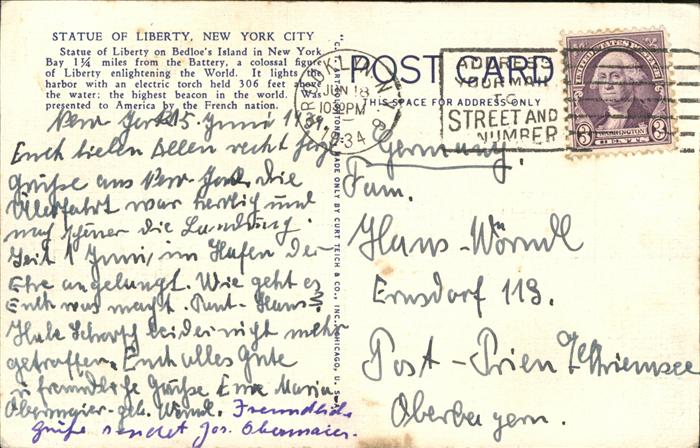 STATUE OF LIBERTY, NEW YORK CITY
Statue of Liberty on Bedloe's Island in New York
Bay 1¾ miles from the Battery, a colossal figure
of Liberty enlightening the World. It lights the
harbor with an electric torch held 306 feet above
the water: the highest beacon in the world. Was
presented to America by the French nation.
New York 15. Juni 1934.
Euch lieben Allen recht herzl
Grüße aus New-York. Die
Überfahrt war herrlich und
noch schöner die Landung.
Seit 1 Juni, im Hafen der
Ehe angelangt. Wie geht es
Euch was macht Hans?
Habe Scharff leider nicht mehr
getroffen. Euch alles Gute
u freundliche Grüße Eure Maria
Obermaier- geb. Wörndl. Freundliche
Grüße sendet Jos. Obermaier.
"C.T. ART-COLORTONE" MADE ONLY BY CURT TEICH & CO., INC., CHICAGO, U.S.A.
POST CARD
THIS SPACE FOR ADDRESS ONLY
BROOKLYN N.Y.
JUN 18
1030PM
1934
ADDRESS
YOUR MAIL
TO
STREET AND
NUMBER
UNITED STATES POSTAGE
3 WASHINGTON 3
CENTS
Germany.
Fam.
Hans-Wörndl
Ernsdorf 113.
Post-Prien Chiemsee
Oberbayern.